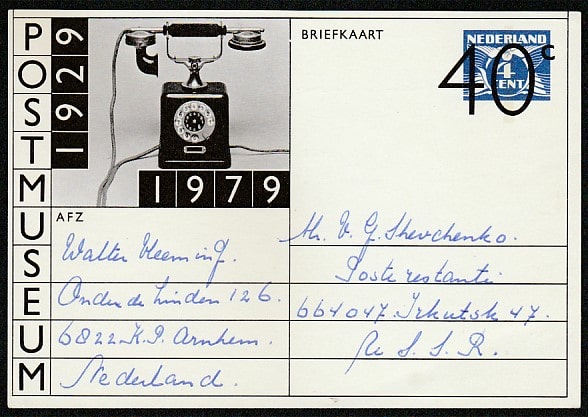 POSTMUSEUM
1929
1979
BRIEFKAART
NEDERLAND
4
CENT
40c
AFZ
Walter Heeming.
Onder de Linden 126.
6822.K.P. Arnhem.
Nederland.
Mr. V. G. Shevchenko.
Poste restante
664047. Irkutsk 47.
U.S.S.R.